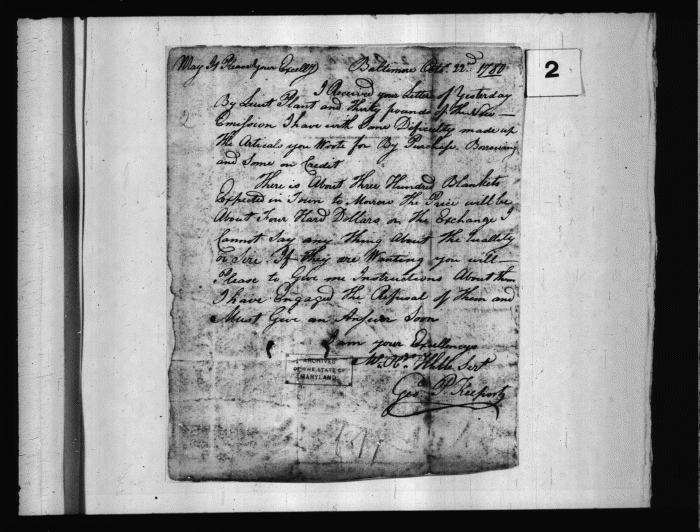 May It Please Your Excelly Baltimore Octo. 22d. 1780
2
I Received you Letter of Yesterday
By Lieut Plant and thirty pounds of the New
Emission I have with Some Dificulty made up
2
the Articals you Wrote for By Purchase Borrowing
and Some on Credit
There is About Three Hundred Blankets
Expected in Town to Morrow the Price will be
About Four Hard Dollars or the Exchange I
Cannot Say any thing About the Quallity
or Size If they are Wanting you will
Please to Give me Instructions About them
I have Engaged the Refusal of them and
Must Give an Answer Soon
I am your Excellencys
Mt. Hbl. Sert
ARCHIVES
OF THE STATE OF
MARYLAND
Geo. P. Keeports